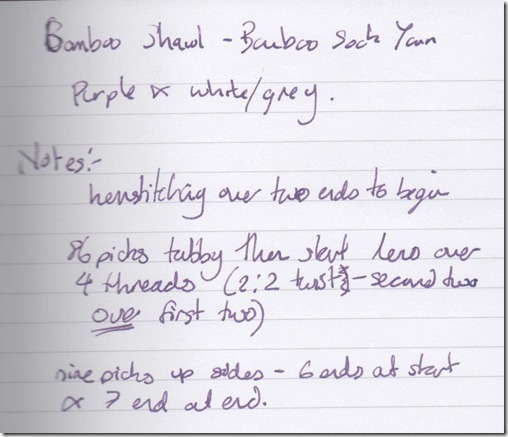 Bamboo shawl - Bamboo Sock Yarn
Purple & white/grey.
Notes:-
hemstitching over two ends to begin
86 picks tabby then start leno over
4 threads (2:2 twist - second two
over first two)
nine picks up - 6 ends at start
& 7 end at end.